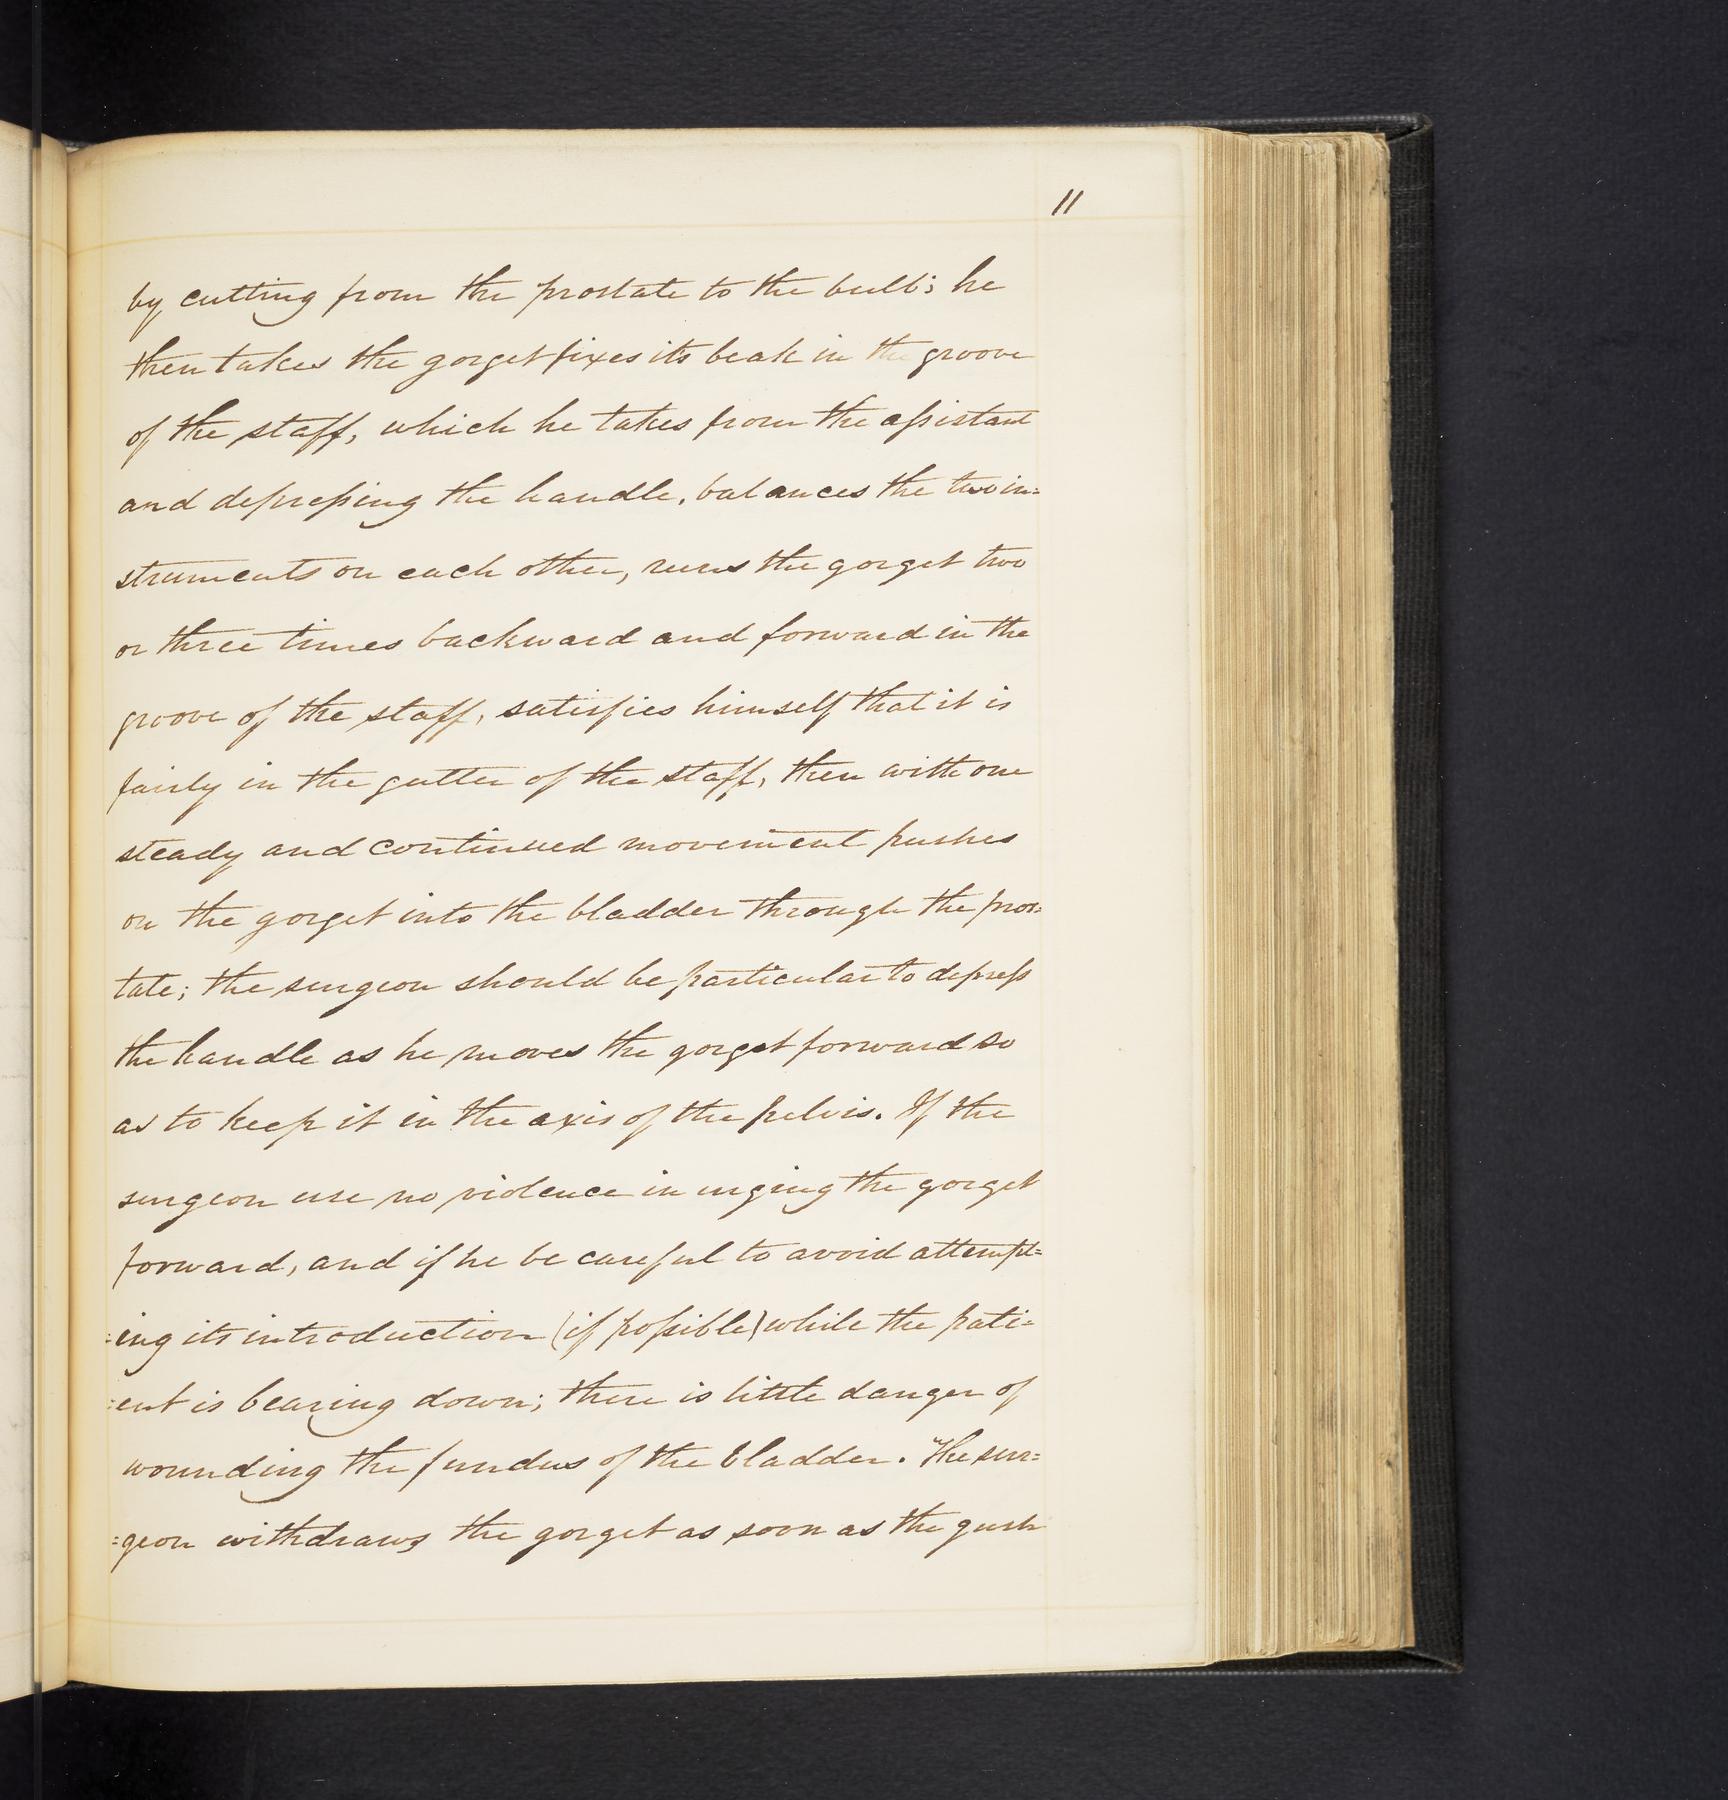 11
by cutting from the prostate to the bulb; he
then takes the gorget fixes its beak in the groove
of the staff, which he takes from the assistant
and depressing the handle, balances the two in=
struments on each other, runs the gorget two
or three times backward and forward in the
groove of the staff, satisfies himself that it is
fairly in the gutter of the staff, then with one
steady and continued movement pushes
on the gorget into the bladder through the pros=
tate; the surgeon should be particular to depress
the handle as he moves the gorget forward so
as to keep it in the axis of the pelvis. If the
surgeon use no violence in urging the gorget
forward, and if he be careful to avoid attempt=
=ing its introduction (if possible) while the pati=
=ent is bearing down; there is little danger of
wounding the fundus of the bladder. The sur=
=geon withdraws the gorget as soon as the gush